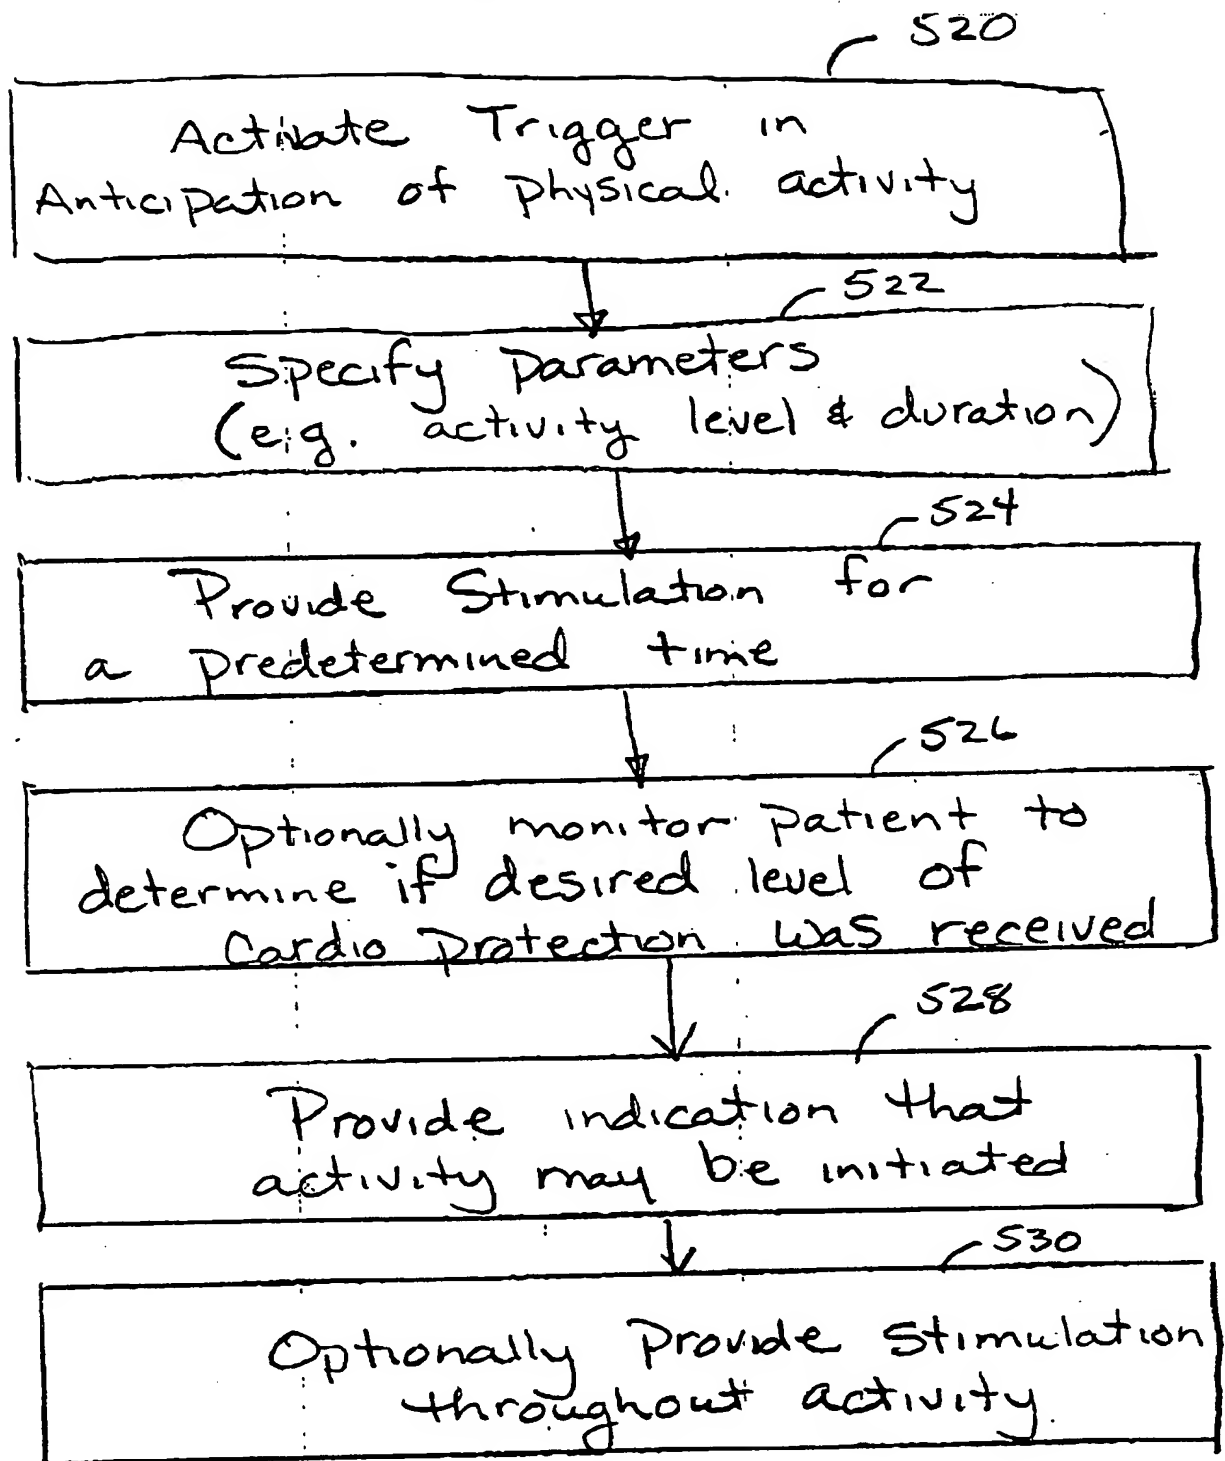 520
Activate Trigger in
Anticipation of physical activity
522
Specify parameters
(e.g. activity level & duration)
524
Provide Stimulation for
a predetermined time
526
Optionally monitor patient to
determine if desired level of
Cardio protection was received
528
Provide indication that
activity may be initiated
530
Optionally Provide Stimulation
throughout activity.